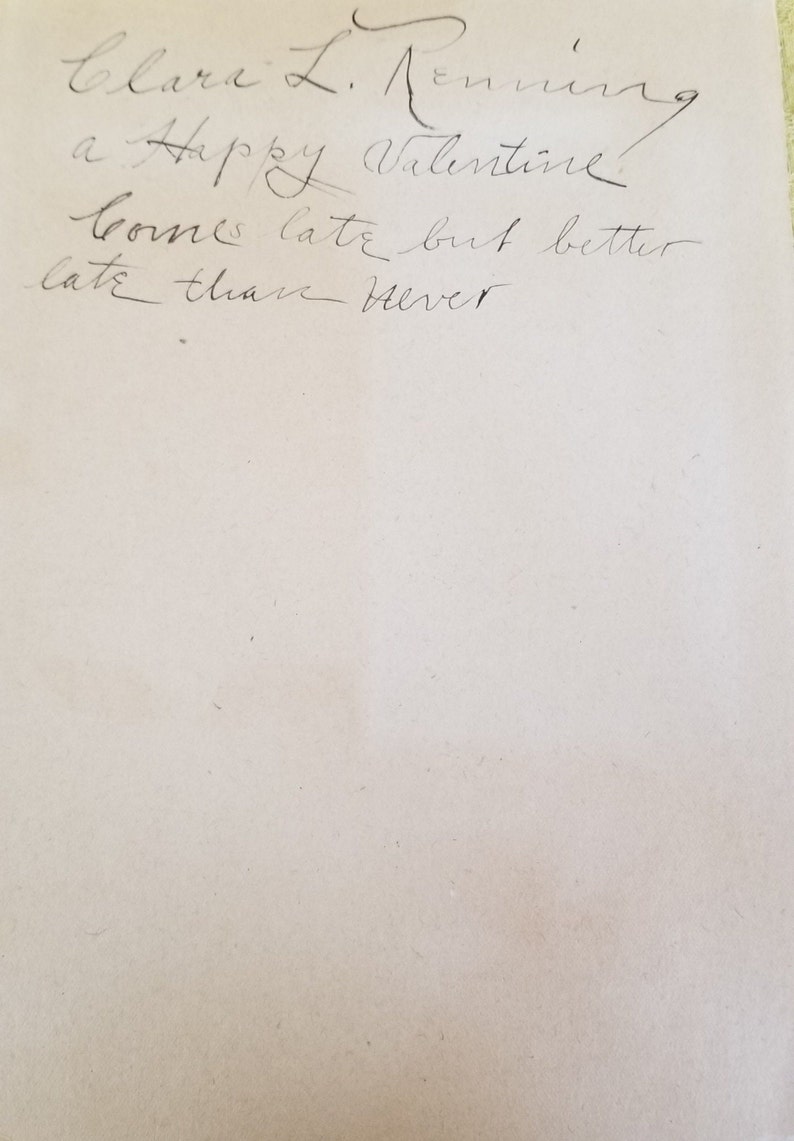 Clara L. Renning
a Happy Valentine
Comes late but better
late than never